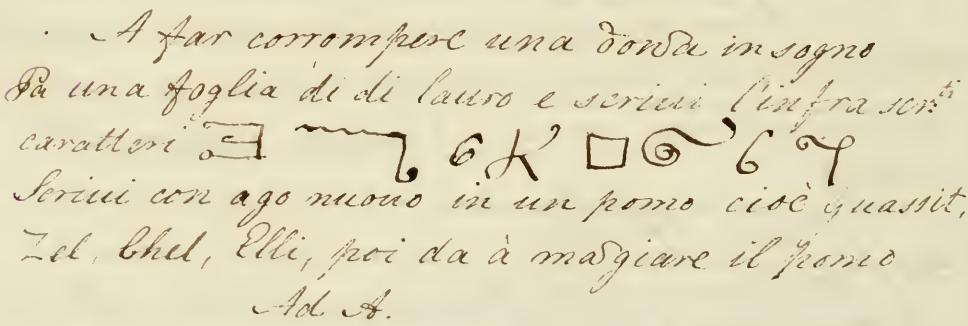 A far corrompere una donda in sogno
Pa una foglia di di lauro e scriui l'infra scr.ti
caratteri
Scriui con ago nuouo in un pomo cioè quassit,
Zel, Chel, Elli, poi da à magiare il pomo
Ad A.